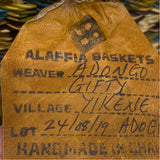 ALAFFIA BASKETS
WEAVER ADONGO
GIFTY
VILLAGE YIKENE
LOT 24/08/19 ADOG
HANDMADE IN